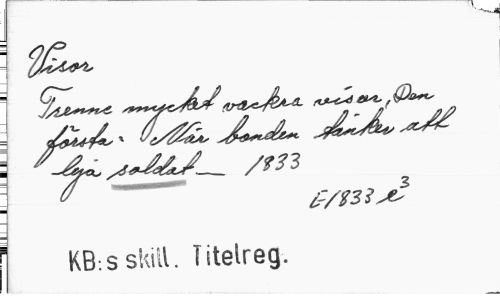 Visor
Trenne mycket vackra visor, Den
första: När bonden tänker att
leja soldat — 1833
E1833 e³
KB:s skill. Titelreg.